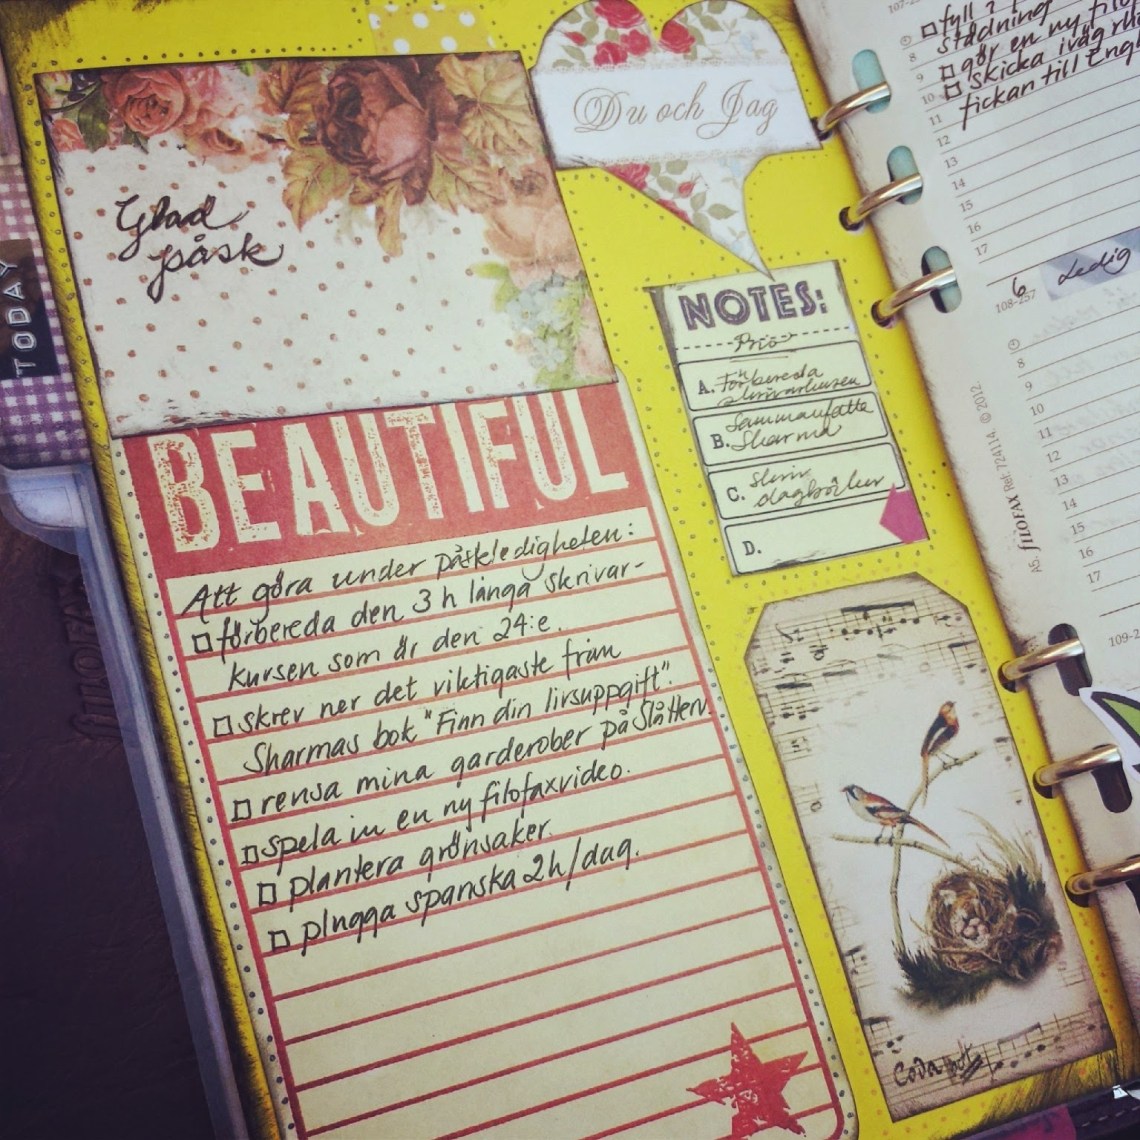 TODAY
Glad
påsk
Du och Jag
BEAUTIFUL
Att göra under påskledigheten:
□ förbereda den 3 h långa skrivar-
kursen som är den 24:e.
□ skrev ner det viktigaste från
Sharmas bok "Finn din livsuppgift".
□ rensa mina garderober på Slåtterv.
□ spela in en ny filofaxvideo.
□ plantera grönsaker.
□ plugga spanska 2h/dag.
NOTES:
Prio
A. Förbereda
skrivarkursen
Sammanfatta
B. Sharma
skriv
C. dagböcker
D.
107-
□ fyll i
städning
8
9
□ gör en ny filo
10
□ skicka iväg
11
fickan till Engl
12
13
14
15
16
17
6 Ledig
108-257
8
9
10
11
12
13
14
15
16
17
109-2
A5. FILOFAX Ref. 724114. © 2012
FILOFAX